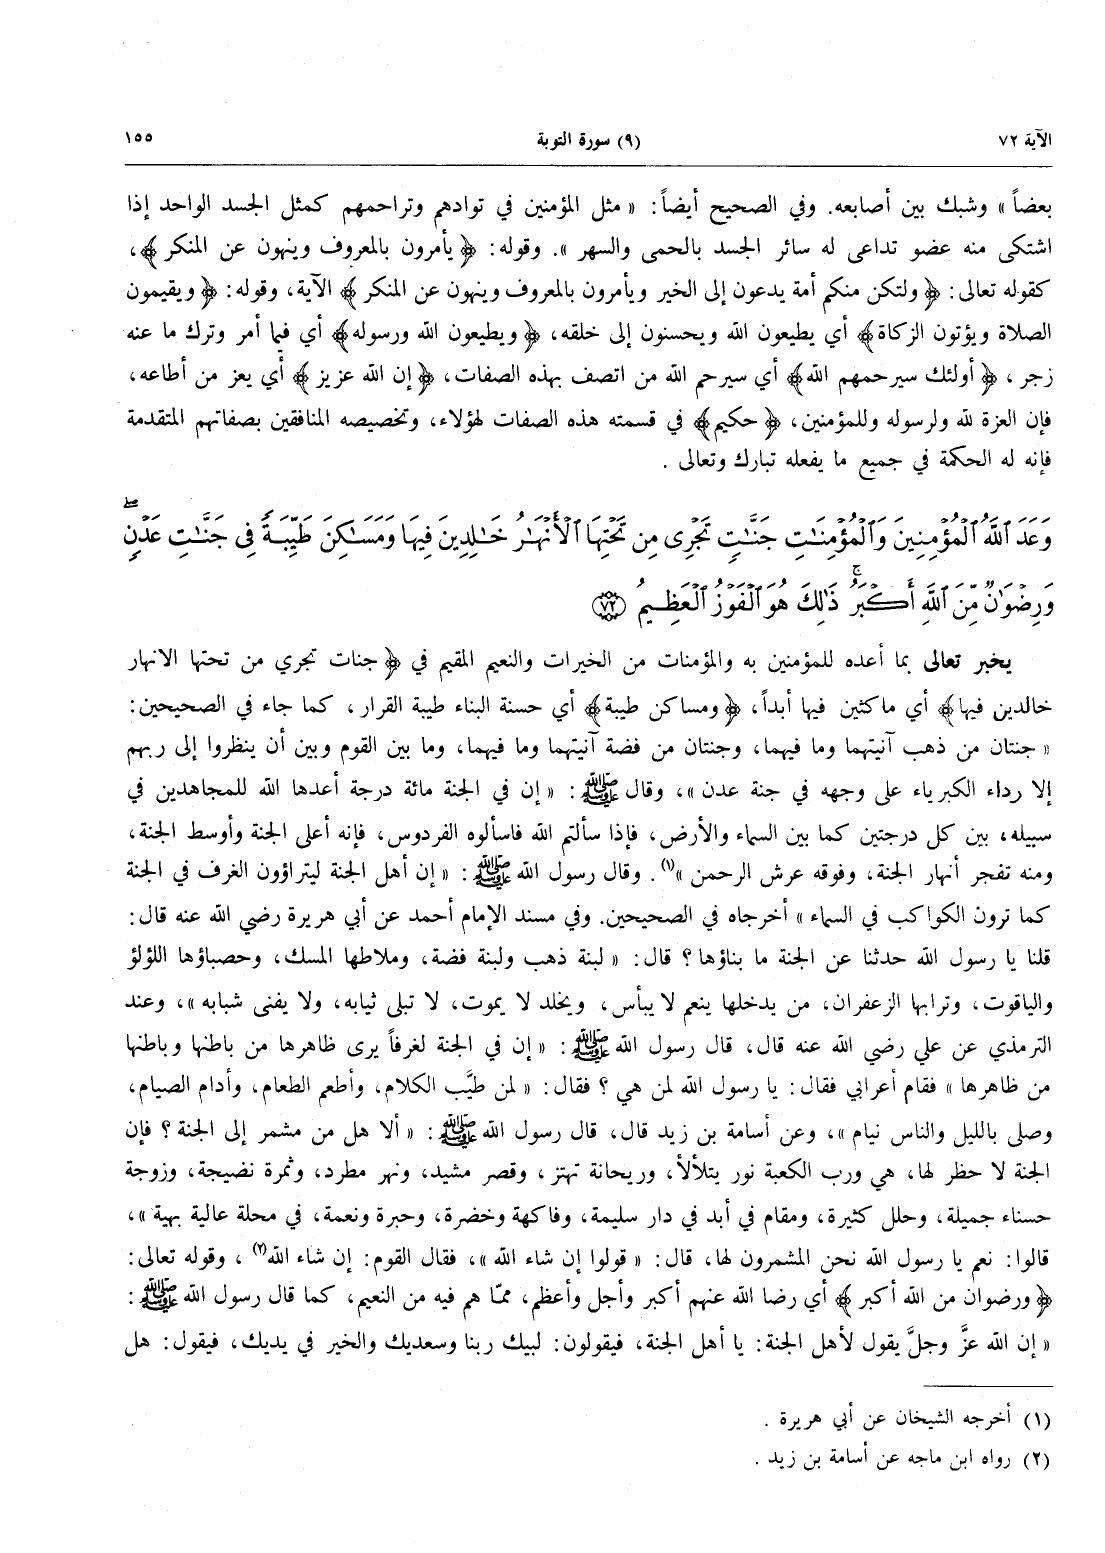 الآية ٧٢ (٩) سورة التوبة ١٥٥
بعضاً » وشبك بين أصابعه. وفي الصحيح أيضاً: « مثل المؤمنين في توادهم وتراحمهم كمثل الجسد الواحد إذا
اشتكى منه عضو تداعى له سائر الجسد بالحمى والسهر ». وقوله: ﴿ يأمرون بالمعروف وينهون عن المنكر ﴾،
كقوله تعالى: ﴿ ولتكن منكم أمة يدعون إلى الخير ويأمرون بالمعروف وينهون عن المنكر ﴾ الآية، وقوله: ﴿ ويقيمون
الصلاة ويؤتون الزكاة﴾ أي يطيعون الله ويحسنون إلى خلقه، ﴿ ويطيعون الله ورسوله﴾ أي فيما أمر وترك ما عنه
زجر ، ﴿ أولئك سيرحمهم الله﴾ أي سيرحم الله من اتصف بهذه الصفات، ﴿ إن الله عزيز ﴾ أي يعز من أطاعه،
فإن العزة لله ولرسوله وللمؤمنين، ﴿ حكيم﴾ في قسمته هذه الصفات لهؤلاء، وتخصيصه المنافقين بصفاتهم المتقدمة
فإنه له الحكمة في جميع ما يفعله تبارك وتعالى .
وَعَدَ ٱللَّهُ ٱلْمُؤْمِنِينَ وَٱلْمُؤْمِنَٰتِ جَنَّٰتٍ تَجْرِى مِن تَحْتِهَا ٱلْأَنْهَٰرُ خَٰلِدِينَ فِيهَا وَمَسَٰكِنَ طَيِّبَةً فِى جَنَّٰتِ عَدْنٍۖ
وَرِضْوَٰنٌ مِّنَ ٱللَّهِ أَكْبَرُۚ ذَٰلِكَ هُوَ ٱلْفَوْزُ ٱلْعَظِيمُ ﴿٧٢﴾
يخبر تعالى بما أعده للمؤمنين به والمؤمنات من الخيرات والنعيم المقيم في ﴿ جنات تجري من تحتها الانهار
خالدين فيها﴾ أي ماكثين فيها أبداً، ﴿ ومساكن طيبة﴾ أي حسنة البناء طيبة القرار ، كما جاء في الصحيحين:
« جنتان من ذهب آنيتهما وما فيهما، وجنتان من فضة آنيتهما وما فيهما، وما بين القوم وبين أن ينظروا إلى ربهم
إلا رداء الكبرياء على وجهه في جنة عدن »، وقال ﷺ : « إن في الجنة مائة درجة أعدها الله للمجاهدين في
سبيله، بين كل درجتين كما بين السماء والأرض، فإذا سألتم الله فاسألوه الفردوس، فإنه أعلى الجنة وأوسط الجنة،
ومنه تفجر أنهار الجنة، وفوقه عرش الرحمن »(١) . وقال رسول الله ﷺ : « إن أهل الجنة ليتراؤون الغرف في الجنة
كما ترون الكواكب في السماء » أخرجاه في الصحيحين. وفي مسند الإمام أحمد عن أبي هريرة رضي الله عنه قال:
قلنا يا رسول الله حدثنا عن الجنة ما بناؤها ؟ قال: « لبنة ذهب ولبنة فضة، وملاطها المسك، وحصباؤها اللؤلؤ
والياقوت، وترابها الزعفران، من يدخلها ينعم لا يبأس، ويخلد لا يموت، لا تبلى ثيابه، ولا يفنى شبابه »، وعند
الترمذي عن علي رضي الله عنه قال، قال رسول الله ﷺ : « إن في الجنة لغرفاً يرى ظاهرها من باطنها وباطنها
من ظاهرها » فقام أعرابي فقال: يا رسول الله لمن هي ؟ فقال: « لمن طيَّب الكلام، وأطعم الطعام، وأدام الصيام،
وصلى بالليل والناس نيام »، وعن أسامة بن زيد قال، قال رسول الله ﷺ : « ألا هل من مشمر إلى الجنة ؟ فإن
الجنة لا حظر لها، هي ورب الكعبة نور يتلألأ، وريحانة تهتز ، وقصر مشيد، ونهر مطرد، وثمرة نضيجة، وزوجة
حسناء جميلة، وحلل كثيرة، ومقام في أبد في دار سليمة، وفاكهة وخضرة، وحبرة ونعمة، في محلة عالية بهية »،
قالوا: نعم يا رسول الله نحن المشمرون لها، قال: « قولوا إن شاء الله »، فقال القوم: إن شاء الله(٢) ، وقوله تعالى:
﴿ ورضوان من الله أكبر ﴾ أي رضا الله عنهم أكبر وأجل وأعظم، ممّا هم فيه من النعيم، كما قال رسول الله ﷺ :
« إن الله عزَّ وجلَّ يقول لأهل الجنة: يا أهل الجنة، فيقولون: لبيك ربنا وسعديك والخير في يديك، فيقول: هل
(١) أخرجه الشيخان عن أبي هريرة .
(٢) رواه ابن ماجه عن أسامة بن زيد .